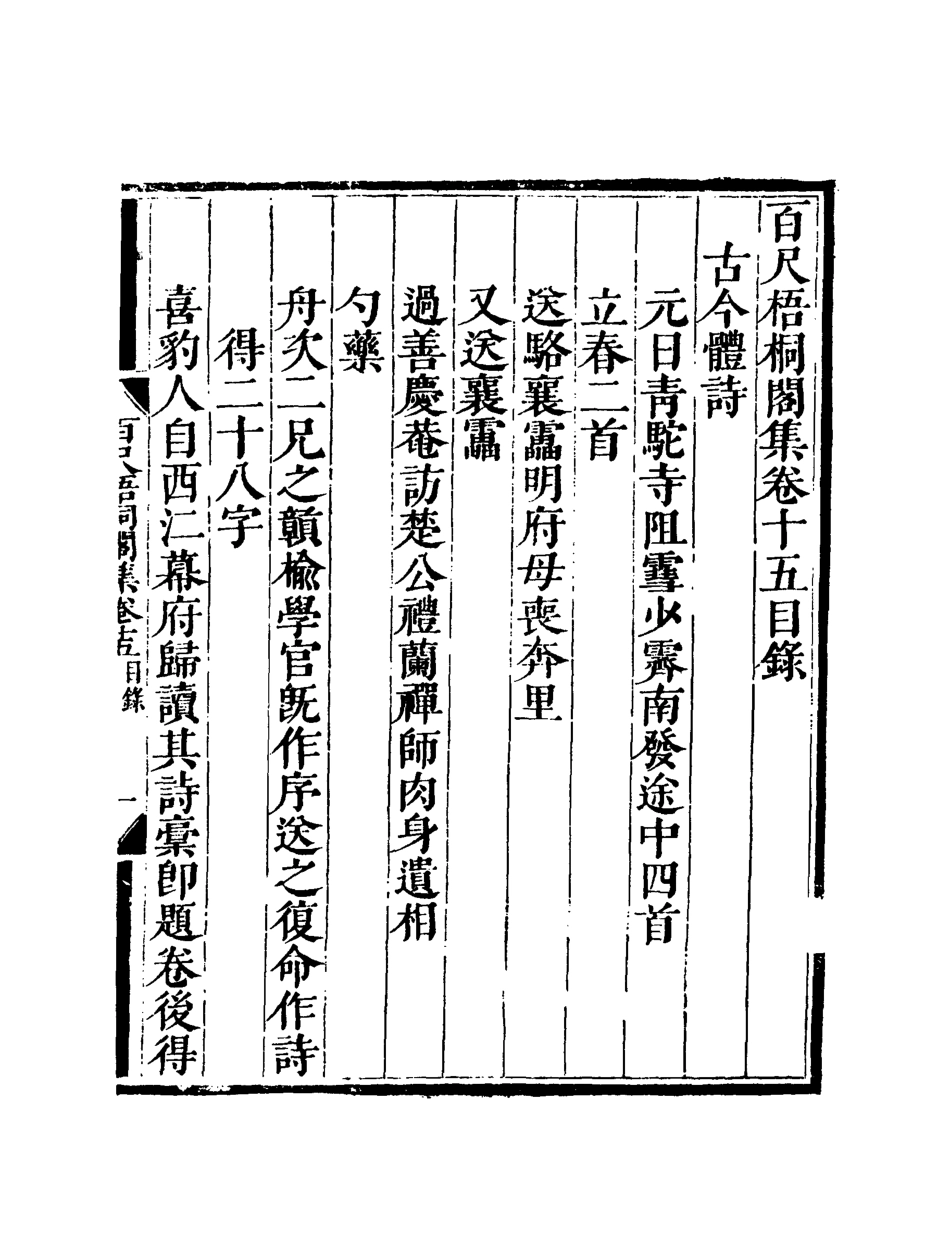 百尺梧桐閣集卷十五目錄
古今體詩
元日靑駝寺阻雪少霽南發途中四首
立春二首
送駱襄靁明府母喪奔里
又送襄靁
過善慶菴訪楚公禮蘭禪師肉身遺相
勺藥
舟次二兄之贑榆學官旣作序送之復命作詩
得二十八字
喜豹人自西江幕府歸讀其詩稾卽題卷後得
百尺梧桐閣集卷十五目錄
一